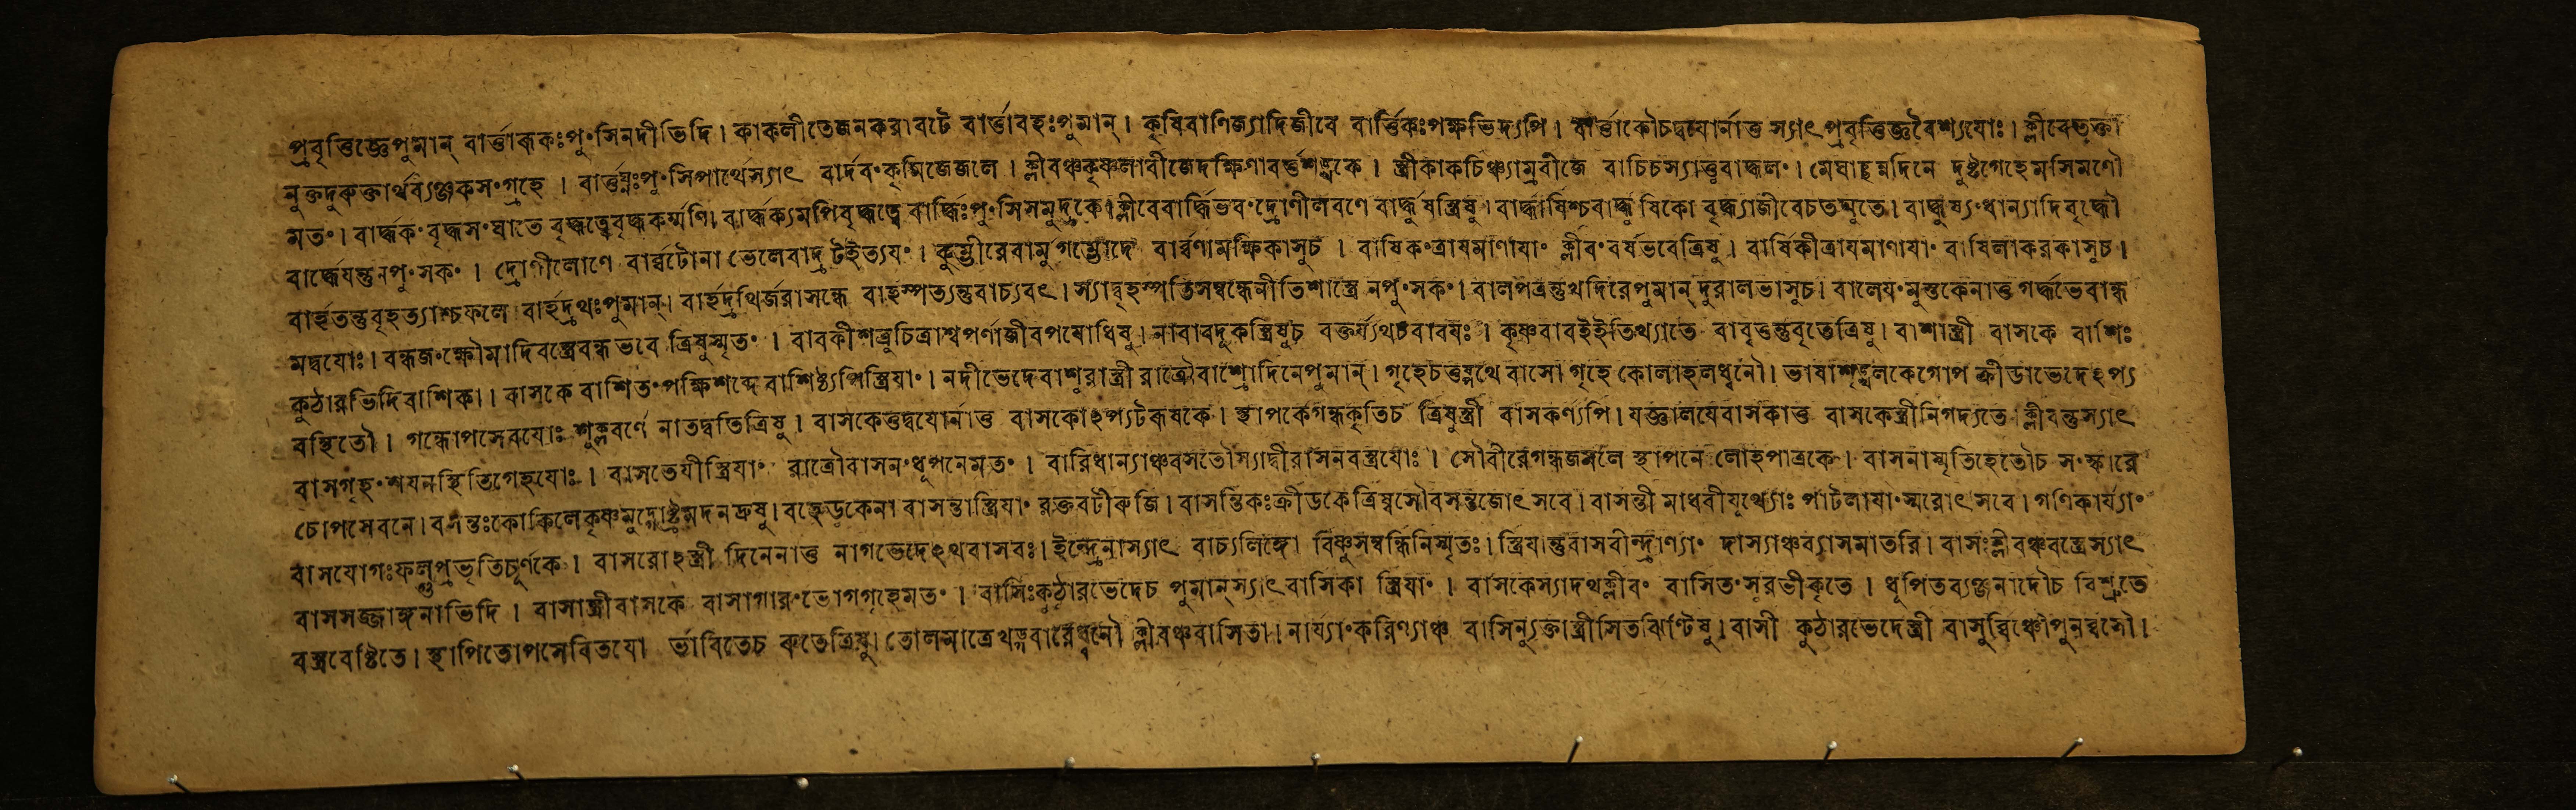 প্রবৃত্তিজ্ঞেপুমান্ বার্ত্তাকৃকঃপু॰সিনদীভিদি। কাকলীতেজনকরাবটে বার্ত্তাবহঃপুমান্। কৃষিবাণিজ্যাদিজীবে বার্ত্তিকঃপক্ষভিদ্যপি। বার্ত্তাকৌচদ্বয়োর্নাত্ত স্যাৎপ্রবৃত্তিজ্ঞবৈশ্যযোঃ। ক্লীবেতূক্তা
নুক্তদুরুক্তার্থব্যঞ্জকস॰গ্রহে। বার্ত্তঘ্নঃপু॰সিপার্থেস্যাৎ বার্দব॰কৃমিজেজলে। ক্লীবঞ্চকৃষ্ণলাবীজেদক্ষিণাবর্ত্তশঙ্খকে। স্ত্রীকাকচিঞ্চ্যাম্রবীজে বাচিচস্যাত্তুবার্দ্দল॰। মেঘাচ্ছন্নদিনে দুষ্টগেহেমসিমণৌ
মত॰। বার্দ্ধক॰বৃদ্ধস॰ঘাতে বৃদ্ধত্বেবৃদ্ধকর্ম্মণি। বার্দ্ধক্যমপিবৃদ্ধত্বে বার্দ্ধিঃপু॰সিসমুদ্রকে। ক্লীবেবার্দ্ধিভব॰দ্রোণীলবণে বার্দ্ধুষস্ত্রিষু। বার্দ্ধুষিশ্চবার্দ্ধুষিকো বৃদ্ধ্যাজীবেচতম্মুতে। বার্দ্ধুষ্য॰ধান্যাদিবৃদ্ধৌ
বার্দ্ধেযন্তুনপু॰সক॰। দ্রোণীলোণে বার্ব্বটোনা ভেলেবাদ্রটইত্যয॰। কুম্ভীরেবামুগম্ভোদে বার্ব্বণামক্ষিকাসুচ। বার্ষিক॰ত্রাযমাণাযা॰ ক্লীব॰বর্ষভবেত্রিষু। বার্ষিকীত্রাযমাণাযা॰ বার্ষিলাকরকাসুচ।
বার্হতন্তুবৃহত্যাশ্চফলে বার্হদ্রথঃপুমান্। বার্হদ্রথির্জরাসন্ধে বার্হস্পত্যন্তুবাচ্যবৎ। স্যাদ্বৃহস্পতিসম্বন্ধেনীতিশাস্ত্রে নপু॰সক॰। বালপত্রন্তুখদিরেপুমান্ দুরালভাসুচ। বালেয॰মুস্তকেনাত্ত গর্দ্দভেবান্ধ
মদ্বযোঃ। বল্কজ॰ক্ষৌমাদিবস্ত্রেবল্কভবে ত্রিষুস্মৃত॰। বাবকীশত্রুচিত্রাশ্বপর্ণাজীবপযোধিষু। নাবাবদূকস্ত্রিষুচ বক্তর্য্যথচবাবযঃ। কৃষ্ণবাবইইতিখ্যাতে বাবৃত্তন্তুবৃত্তেত্রিষু। বাশাস্ত্রী বাসকে বাশিঃ
কুঠারভিদিবাশিকা। বাসকে বাশিত॰পক্ষিশব্দে বাশিষ্ট্যপিস্ত্রিযা॰। নদীভেদেবাশুরাস্ত্রী রাত্রৌবাশ্রোদিনেপুমান্। গৃহেচত্বরপথে বাসো গৃহে কোলাহলধ্বনৌ। ভাষাশৃঙ্খলকেগোপ ক্রীডাভেদেঽপ্য
বস্থিতৌ। গন্ধোপসেবযোঃ শুক্লবর্ণে নাতদ্বতিত্রিষু। বাসকেত্তদ্বযোর্নাত্ত বাসকোঽপ্যটরূষকে। স্থাপকেগন্ধকৃতিচ ত্রিষুস্ত্রী বাসকর্ণ্যপি। যজ্ঞালযেবাসকাত্ত বাসকেস্ত্রীনিগদ্যতে। ক্লীবন্তুস্যাৎ
বাসগৃহ॰শযনস্থিতিগেহযোঃ। বাসতেযীস্ত্রিযা॰ রাত্রৌবাসন॰ধূপনেমত॰। বারিধান্যাঞ্চবসতৌস্যাদ্বীরাসনবস্ত্রযোঃ। সৌবীরেগন্ধজজলে স্থাপনে লোহপাত্রকে। বাসনাস্মৃতিহেতৌচ স॰স্কারে
চোপসেবনে। বসন্তঃকোকিলেকৃষ্ণমুদ্গোষ্ট্রমদনদ্রুষু। বহুেড়কেনা বাসন্তাস্ত্রিযা॰ রক্তবটীরুজি। বাসন্তিকঃক্রীডকেত্রিষ্বসৌবসন্তজোৎসবে। বাসন্তী মাধবীযূথ্যোঃ পাটলাযা॰স্মরোৎসবে। গণিকার্য্যা॰
বাসযোগঃফল্গুপ্রভৃতিচূর্ণকে। বাসরোঽস্ত্রী দিনেনাত্ত নাগভেদেঽথবাসবঃ। ইন্দ্রেনাস্যাৎ বাচ্যলিঙ্গো বিষ্ণুসম্বন্ধিনিস্মৃতঃ। স্ত্রিযান্তুবাসবীন্দ্রাণ্যা॰ দাস্যাঞ্চব্যাসমাতরি। বাসঃক্লীবঞ্চবস্ত্রেস্যাৎ
বাসসজ্জাঙ্গনাভিদি। বাসাস্ত্রীবাসকে বাসাগার॰ভোগগৃহেমত॰। বাসিঃকুঠারভেদেচ পুমান্স্যাৎবাসিকা স্ত্রিযা॰। বাসকেস্যাদথক্লীব॰ বাসিত॰সুরভীকৃতে। ধূপিতব্যঞ্জনাদৌচ বিশ্রুতে
বস্ত্রবেষ্টিতে। স্থাপিতোপসেবিতযো র্ভাবিতেচ রুতেত্রিষু। তোলমাত্রেখড়্গবারেধ্বনৌ ক্লীবঞ্চবাসিতা। নার্য্যা॰করিণ্যাঞ্চ বাসিন্যুক্তাস্ত্রীসিতঝিণ্টিষু। বাসী কুঠারভেদেস্ত্রী বাসুর্ব্বিষ্ণৌপুনর্ব্বসৌ।